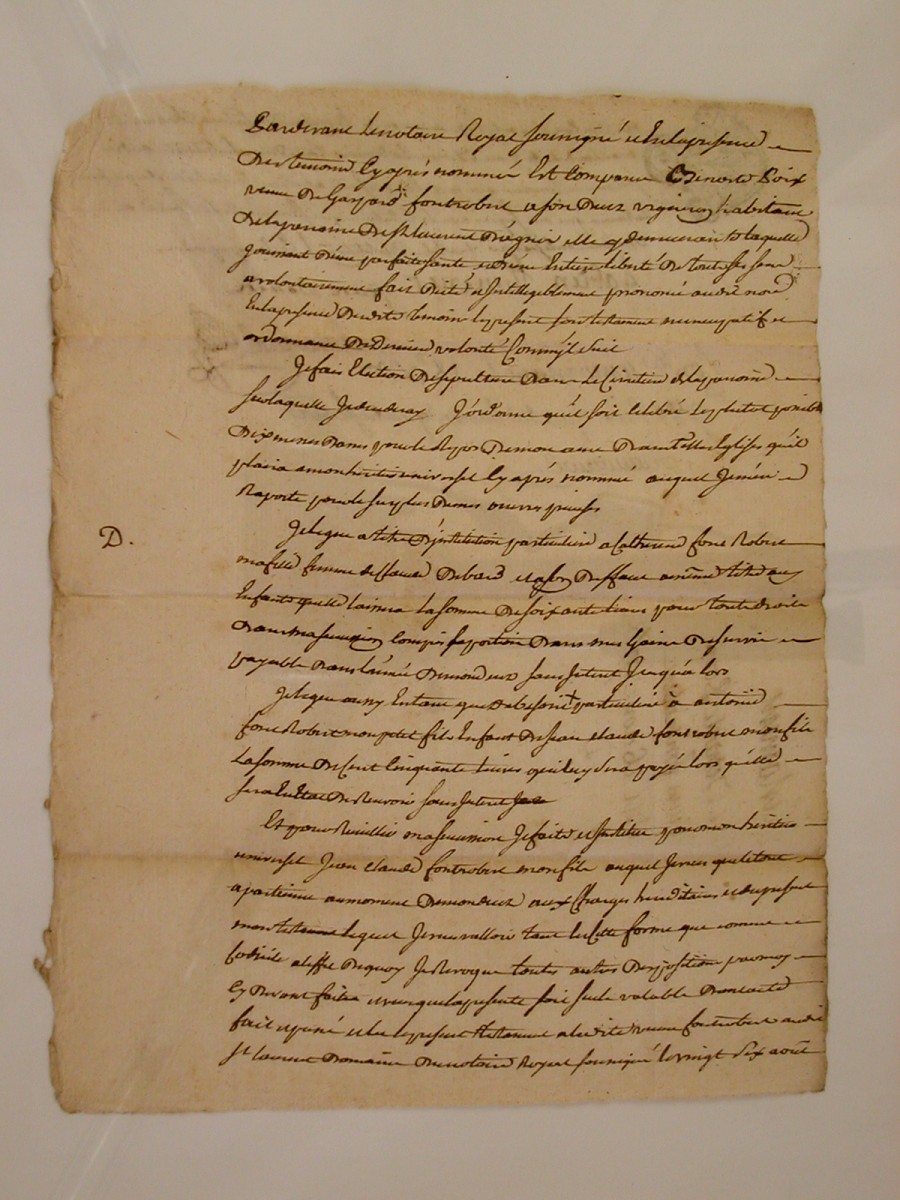 Pardevant le notaire Royal soussigné et En la presence
Des temoins Cy aprés nommés Est Comparue Benoite Poix
veuve De Gaspard fontrobert a son Deces vigneron habitante
De la paroisse De St Laurent D'agnir elle y demeurant laquelle
Jouissant D'une parfaite santé et D'une Entiere liberté De tout ses sens
a volontairement fait Dicté et Intelligiblement prononcé audit not.
En la presence Desdits temoins le present son testament nuncupatif et
ordonnance De Derniere volonté Comm'jl suit
Je fais Election De sepulture Dans Le Cimetiere de la paroisse
sur laquelle Je decederay J'ordonne qu'il soit celebré le plutot possible
Dix messes Basses pour le Repos De mon ame Dans telles Eglises qu'il
plaira a mon heritier universel Cy aprés nommé auquel Je m'en
Raporte pour le surplus De mes œuvres pieuses
D.
Je legue a titre D'institution particuliere a Catherine font Robert
ma fille femme de Claude Debard et a son Deffaut a même titre aux
Enfants quelle laissera La somme De soixante livres pour tout droits
Dans ma succession Compris sa portion Dans mes Gains De survie
payable Dans l'année De mon Deces sans Interet Jusqu'a lors
Je legue aussy En tant que De besoin particuliere à antoine
font Robert mon petit fils Enfant De Jean claude fontrobert mon fils
La somme De Cent Cinquante livres qui luy sera payée lors qu'elle
sera En Etat De Recevoir sans Interet
Et pour Recueillir ma succession Je fait et Institue pour mon heritier
universel Jean claude fontrobert mon fils auquel Je veux que le tout
apartienne au moment De mon Deces aux Charges hereditaires et du present
mon testament lequel Je veux valloir tant En Cette forme que comme
Codicile a l'effet De quoy Je Revoque toutes autres Disposition par moy
Cy Devant faites et veux que la presente soit seule valable Dont acte
fait et passé et lu le present testament a ladite veuve fontrobert audit
St laurent Domaine Du notaire Royal soussigné le vingt six août